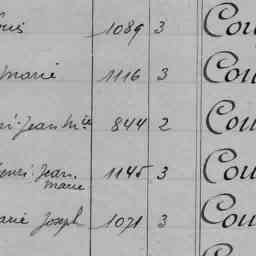 ouis 1089 3 Cou
marie 1116 3 Cou
ri-Jean Mie 844 2 Cou
enri-Jean. 1145 3 Cou
marie
arie Joseph 1071 3 Cou